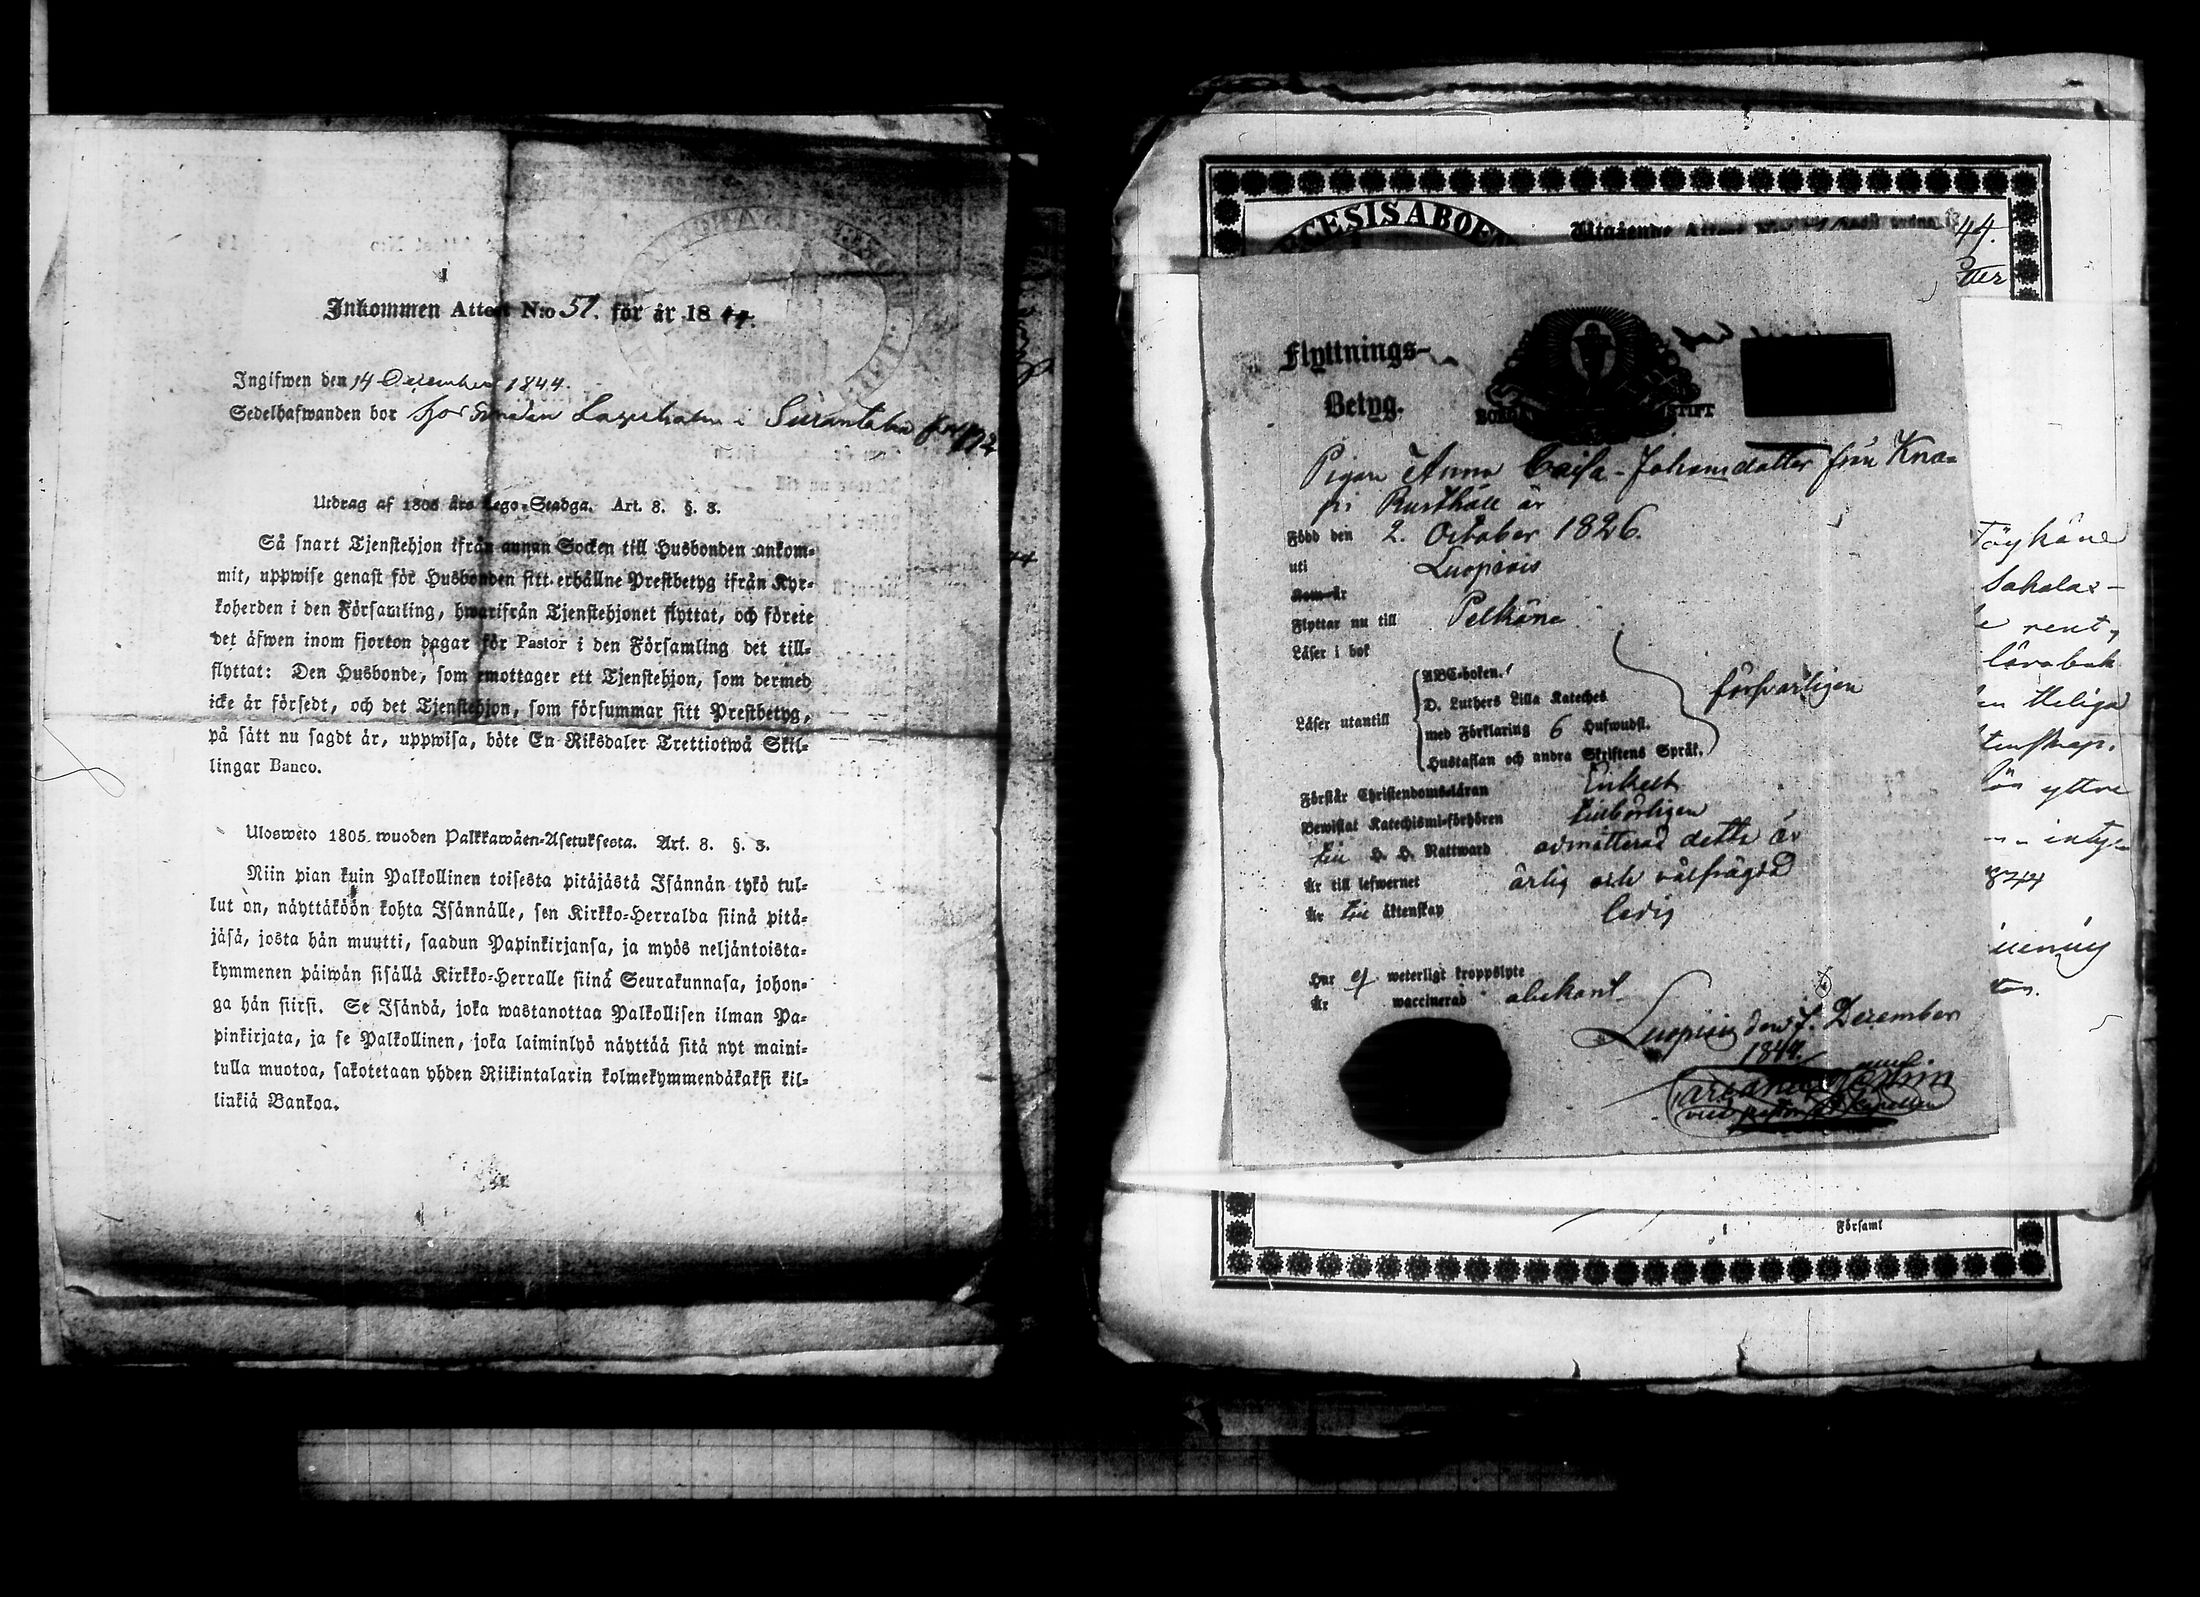 Inkommen Attest N:o 51. för år 1844.
Ingifwen den 14 December 1844.
Sedelhafwanden bor hos Lagerholm i
Utdrag af 1805 års Lego-Stadga. Art. 8. §. 3.
Så snart Tjenstehjon ifrån annan Socken till Husbonden ankom=
mit, uppwise genast för Husbonden sitt erhållne Prestbetyg ifrån Kyr=
koherden i den Församling, hwarifrån Tjenstehjonet flyttat, och förete
det äfwen inom fjorton dagar för Pastor i den Församling det till=
flyttat: Den Husbonde, som emottager ett Tjenstehjon, som dermed
icke är försedt, och det Tjenstehjon, som försummar sitt Prestbetyg,
på sätt nu sagdt är, uppwisa, böte En Riksdaler Trettiotwå Skil=
lingar Banco.
Ulosweto 1805 wuoden Palkkawäen-Asetuksesta. Art. 8. §. 3.
Niin pian kuin Palkollinen toisesta pitäjästä Isännän tykö tul=
lut on, näyttäköön kohta Isännälle, sen Kirkko=Herralda siinä pitä=
jäsä, josta hän muutti, saadun Papinkirjansa, ja myös neljäntoista=
kymmenen päiwän sisällä Kirkko=Herralle siinä Seurakunnasa, johon=
ga hän siirsi. Se Isändä, joka wastanottaa Palkollisen ilman Pa=
pinkirjata, ja se Palkollinen, joka laiminlyö näyttää sitä nyt maini=
tulla muotoa, sakotetaan yhden Riikintalarin kolmekymmendäkaksi kil=
linkiä Bankoa.
CESISABOEN
Utgående Attest
44.
Flyttnings-
Betyg.
STIFT
Pigan Anna Caisa Johansdotter från Kna=
pi Rusthåll är
Född den 2. October 1826.
uti Luopiois
Flyttar nu till Pelkäne
Läser i bok
Läser utantill
ABC=boken.
D. Luthers Lilla Kateches
med Förklaring 6 Hufwudst.
Hustaflan och andra Skriftens Språk.
försvarligen
Förstår Christendoms=läran Enkelt
Bewistat Katechismi=förhören tillbörligen
till H. H. Nattward admitterad detta år
Är till lefwernet ärlig och välfrägdad
Är till äktenskap ledig
Har ej weterligt kroppslyte
Är waccinerad obekant
Luopiois den 7. December
1844.
Töyhäne
Sahalax-
rent,
lärobok
Heliga
yttre
intyg
844
Församl